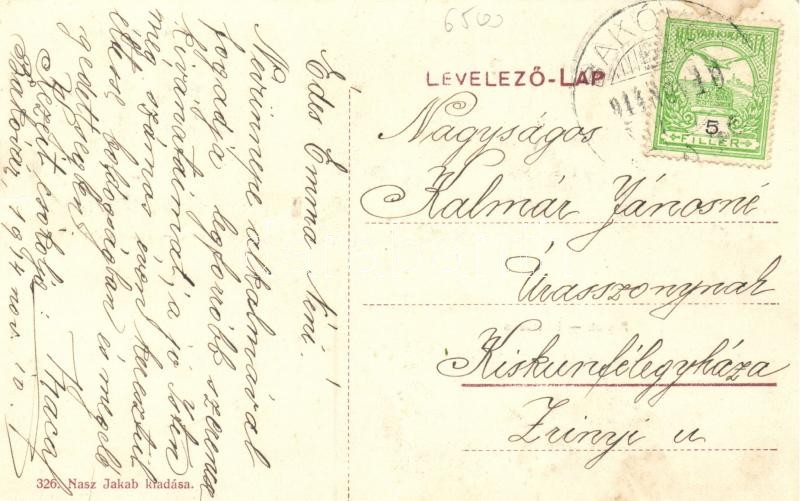 6500
LEVELEZŐ-LAP
MAGYAR KIR. POSTA
5
FILLÉR
Nagyságos
Kalmár Jánosné
Úrasszonynak
Kiskunfélegyháza
Zrinyi u
Édes Emma Néni!
Nevünnepe alkalmával
fogadja legforróbb szerencse
kívánataimat, a jó Isten
még számos éven keresztül
éltesse boldogságban és megelé
gedettségben
Kezeit csókolja:
Bakóvár, 1914 nov. 10.
326. Nasz Jakab kiadása.